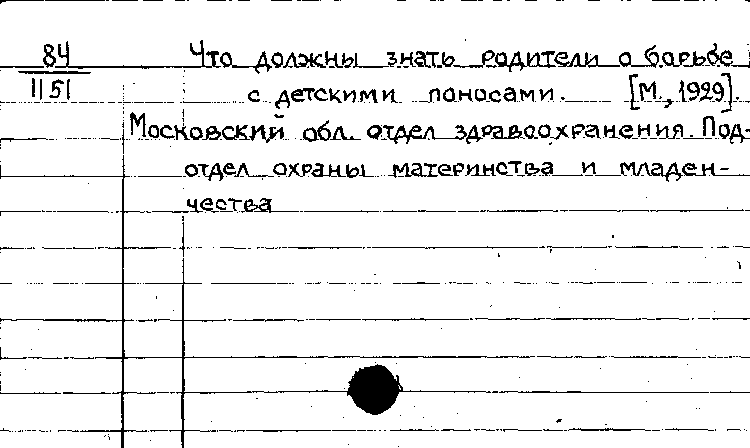 84 Что должны знать родители о борьбе
1151 с детскими поносами. [М., 1929].
Московский обл. отдел здравоохранения. Под-
отдел охраны материнства и младен-
чества